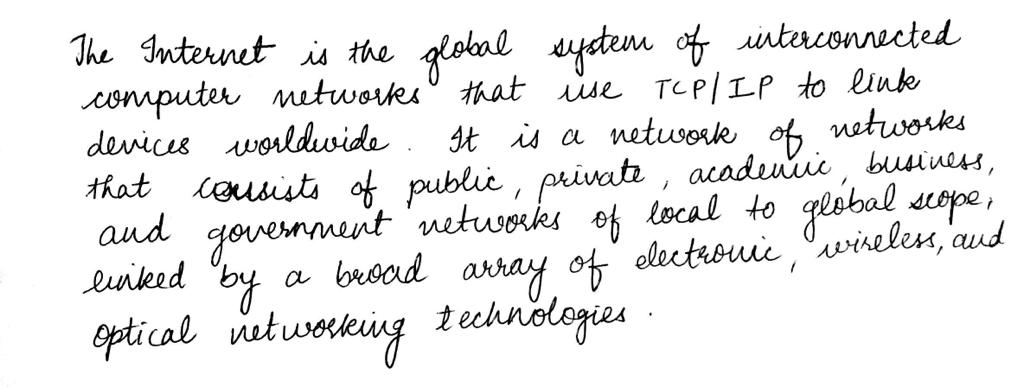 The Internet is the global system of interconnected
computer networks that use TCP/IP to link
devices worldwide. It is a network of networks
that consists of public, private, academic, business,
and government networks of local to global scope,
linked by a broad array of electronic, wireless, and
optical networking technologies.